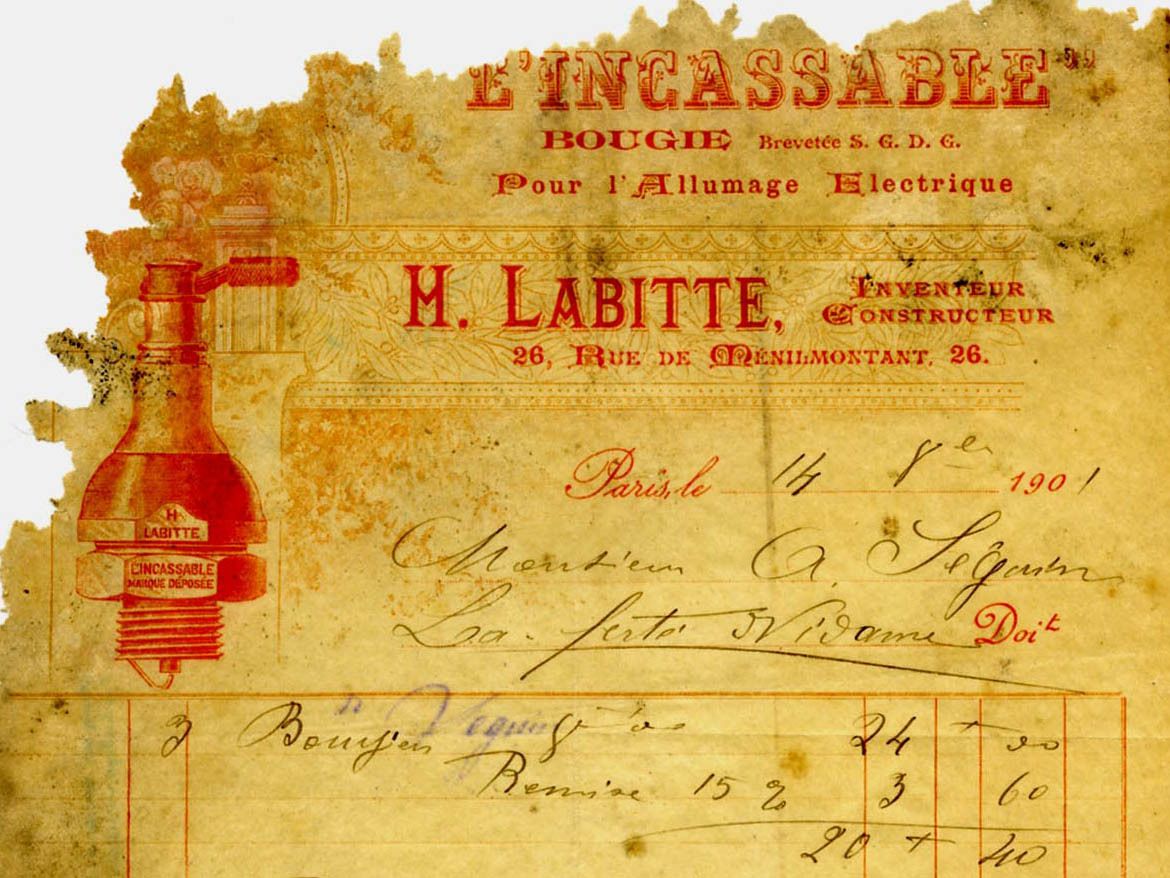 "L'INCASSABLE"
BOUGIE Brevetée S. G. D. G.
Pour l'Allumage Electrique
H. LABITTE, INVENTEUR
CONSTRUCTEUR
26, RUE DE MÉNILMONTANT, 26.
H
LABITTE
L'INCASSABLE
MARQUE DÉPOSÉE
Paris, le 14 8bre 1901
Monsieur A. Séguin
La ferté Vidame Doit
3 Bougies 8 00 24 00
Séguin
Remise 15 % 3 60
20 40